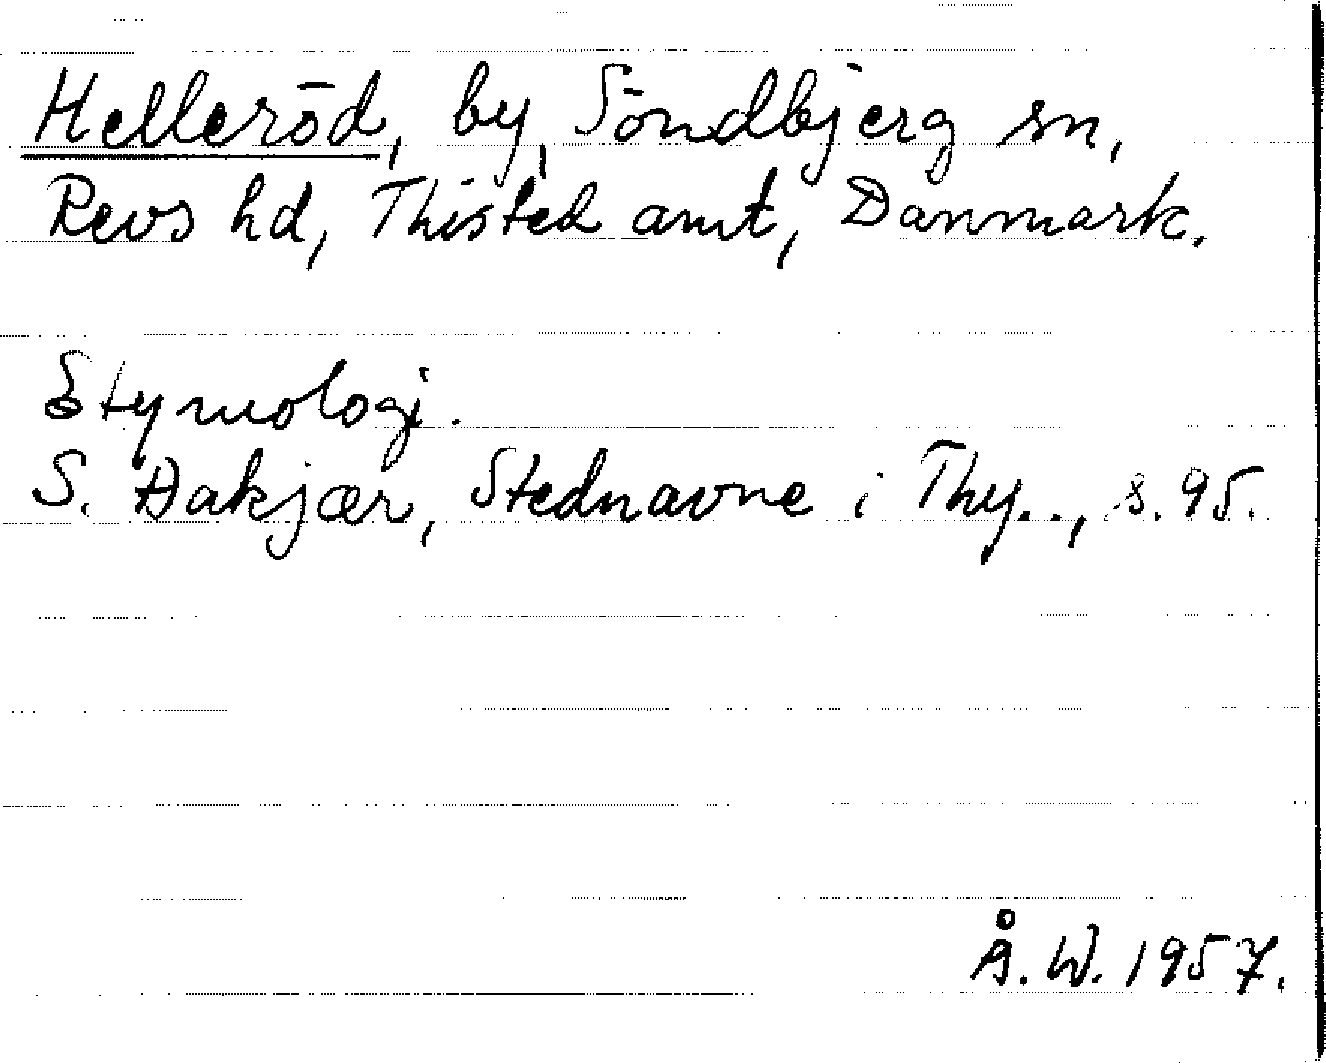 Helleröd, by, Söndbjerg sn,
Revs hd, Thisted amt, Danmark.
Etymologi.
S. Hakjær, Stednavne i Thy.., s. 95.
Å. W. 1957.